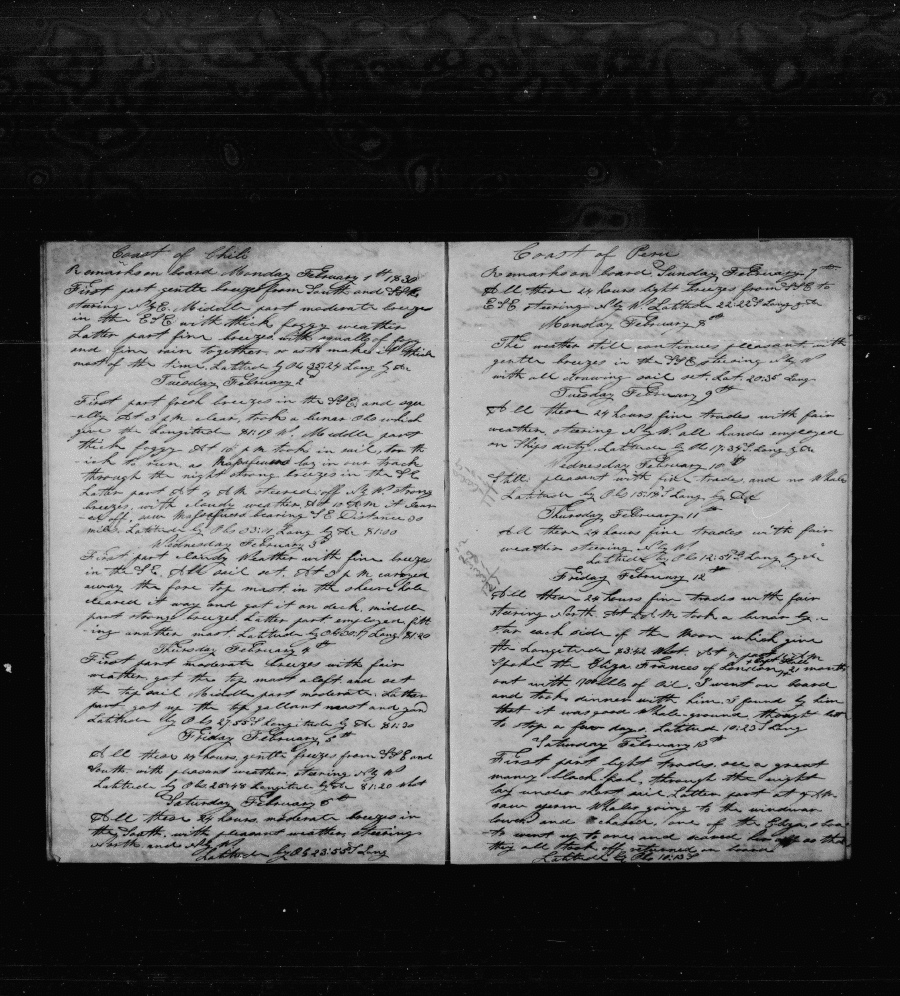 Coast of Chili
Remarks on board Monday February 1st 1830
First part gentle breezes from South and SSE
staring N by E. Middle part moderate breezes
in the ESE with thick foggy weather
Latter part fine breezes with squalls of
and fine rain together, so as to make it thick
most of the time. Latitude by Ob 35:24 Long by
Tuesday February 2
First part fresh breezes in the SSE and squ
-ally At 3 P.M. clear, took a lunar Obs which
give the Longitude 81:19 W. Middle part
thick foggy At 10 P.M. took in sail, too th
-ick to run as Massafuero lay in our track
through the night strong breezes in the SE
Later part At 4 AM steered off N by W strong
breezes, with cloudy weather, At 10 AM it clear
-ed off, saw Massafuero bearing SE Distance 30
miles. Latitude by Obs 33:14 Long by 81:00
Wednesday February 3d
First part cloudy Weather with fine breezes
in the SE. All sail set. At 3 P.M. carried
away the fore top mast, in the sheeve hole
cleared it away and got it on deck, middle
part strong breezes, Latter part employed fitt
-ing another mast Latitude by Obs Long 81:20
Thursday February 4th
First part moderate breezes with fair
weather, got the top mast aloft and set
the top sail Middle part moderate. Latter
part, got up the top gallant mast and yard
Latitude by Obs 27:55 S Longitude by 81:30
Friday February 5th
All these 24 hours, gentle breezes from SSE and
South, with pleasant weather, steering N by W
Latitude by Obs 25:48 Longitude by 81:20 West
Saturday February 6th
All these 24 hours, moderate breezes in
the South, with pleasant weather, steering
North and N by W
Latitude by Ob 23:55 S Long
Coast of Peru
Remarks on board Sunday February 7th
All these 24 hours light breezes from SSE to
ESE steering N by W. Latitude 22:22 S Long by
Monday February 8th
The weather still continues pleasant with
gentle breezes in the SSE, steering N by W
with all drawing sail set. Lat. 20:35 Long
Tuesday February 9th
All these 24 hours fine trades with fair
weather, staring N by W. all hands employed
on Ships duty. Latitude by Ob 17:39 S Long by
Wednesday February 10th
Still pleasant with fine trades, and no Whale
Latitude by Obs 15:18 S Long, by
Thursday February 11th
All these 24 hours fine trades with fair
weather steering N by W
Latitude by Obs 12:51 S Long, by
Friday February 12th
All these 24 hours fine trades with fair
staring North At P.M. took a lunar by a
star each side of the Moon which give
the Longitude 83:42 West. At
Spoke the Eliza Frances of London, 21 months
out with 1100 bbls of Oil, I went on board
and took dinner with him. I found by him
that it was good Whale ground, thought
to stop a few days, Latitude 10:23 S Long
Saturday February 13th
First part light trades, see a great
many Black fish, through the night
lay under short sail Latter part at 9 AM
saw sperm Whales going to the windward
lowered and chased, one of the
to went up to one and scared him off so that
they all took off, returned on board
Latitude by Obs 10:13 S